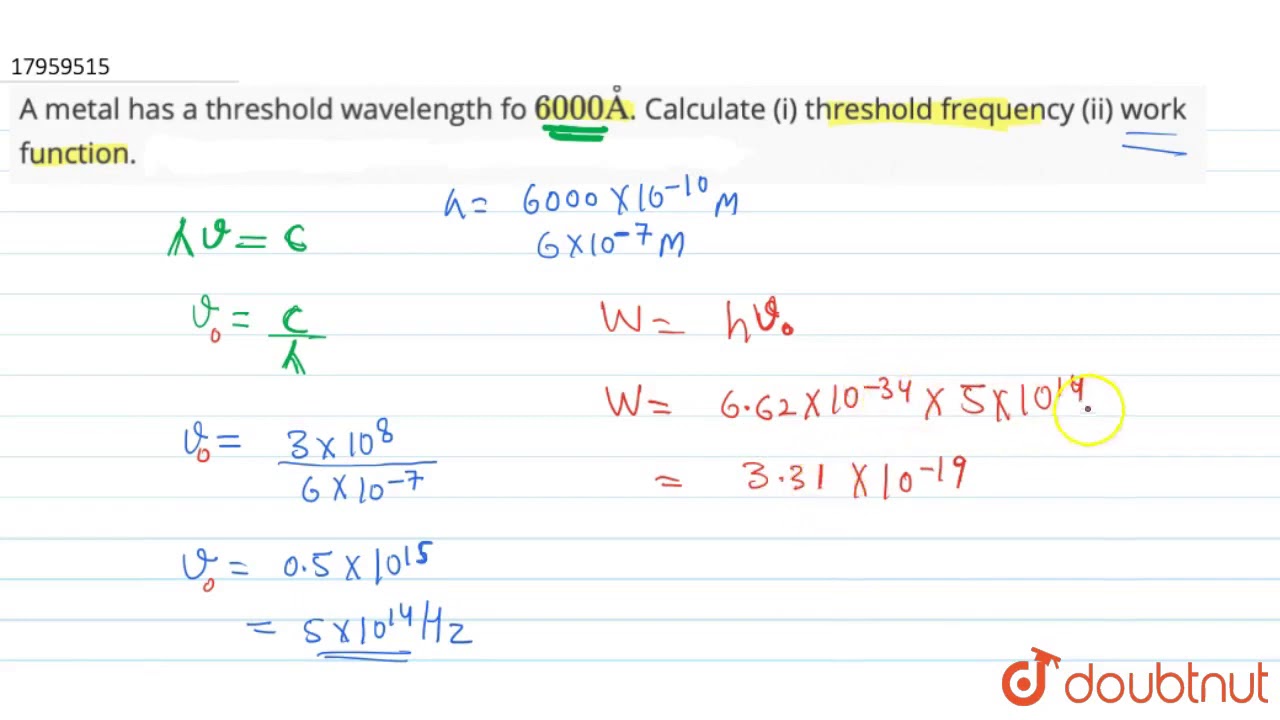 17959515
A metal has a threshold wavelength fo 6000Å. Calculate (i) threshold frequency (ii) work
function.
λ = 6000 × 10⁻¹⁰ M
6 × 10⁻⁷ M
λ υ = c
υ₀ = c / λ
υ₀ = 3 × 10⁸ / 6 × 10⁻⁷
υ₀ = 0.5 × 10¹⁵
= 5 × 10¹⁴ Hz
W = hυ₀
W = 6.62 × 10⁻³⁴ × 5 × 10¹⁴
= 3.31 × 10⁻¹⁹
doubtnut